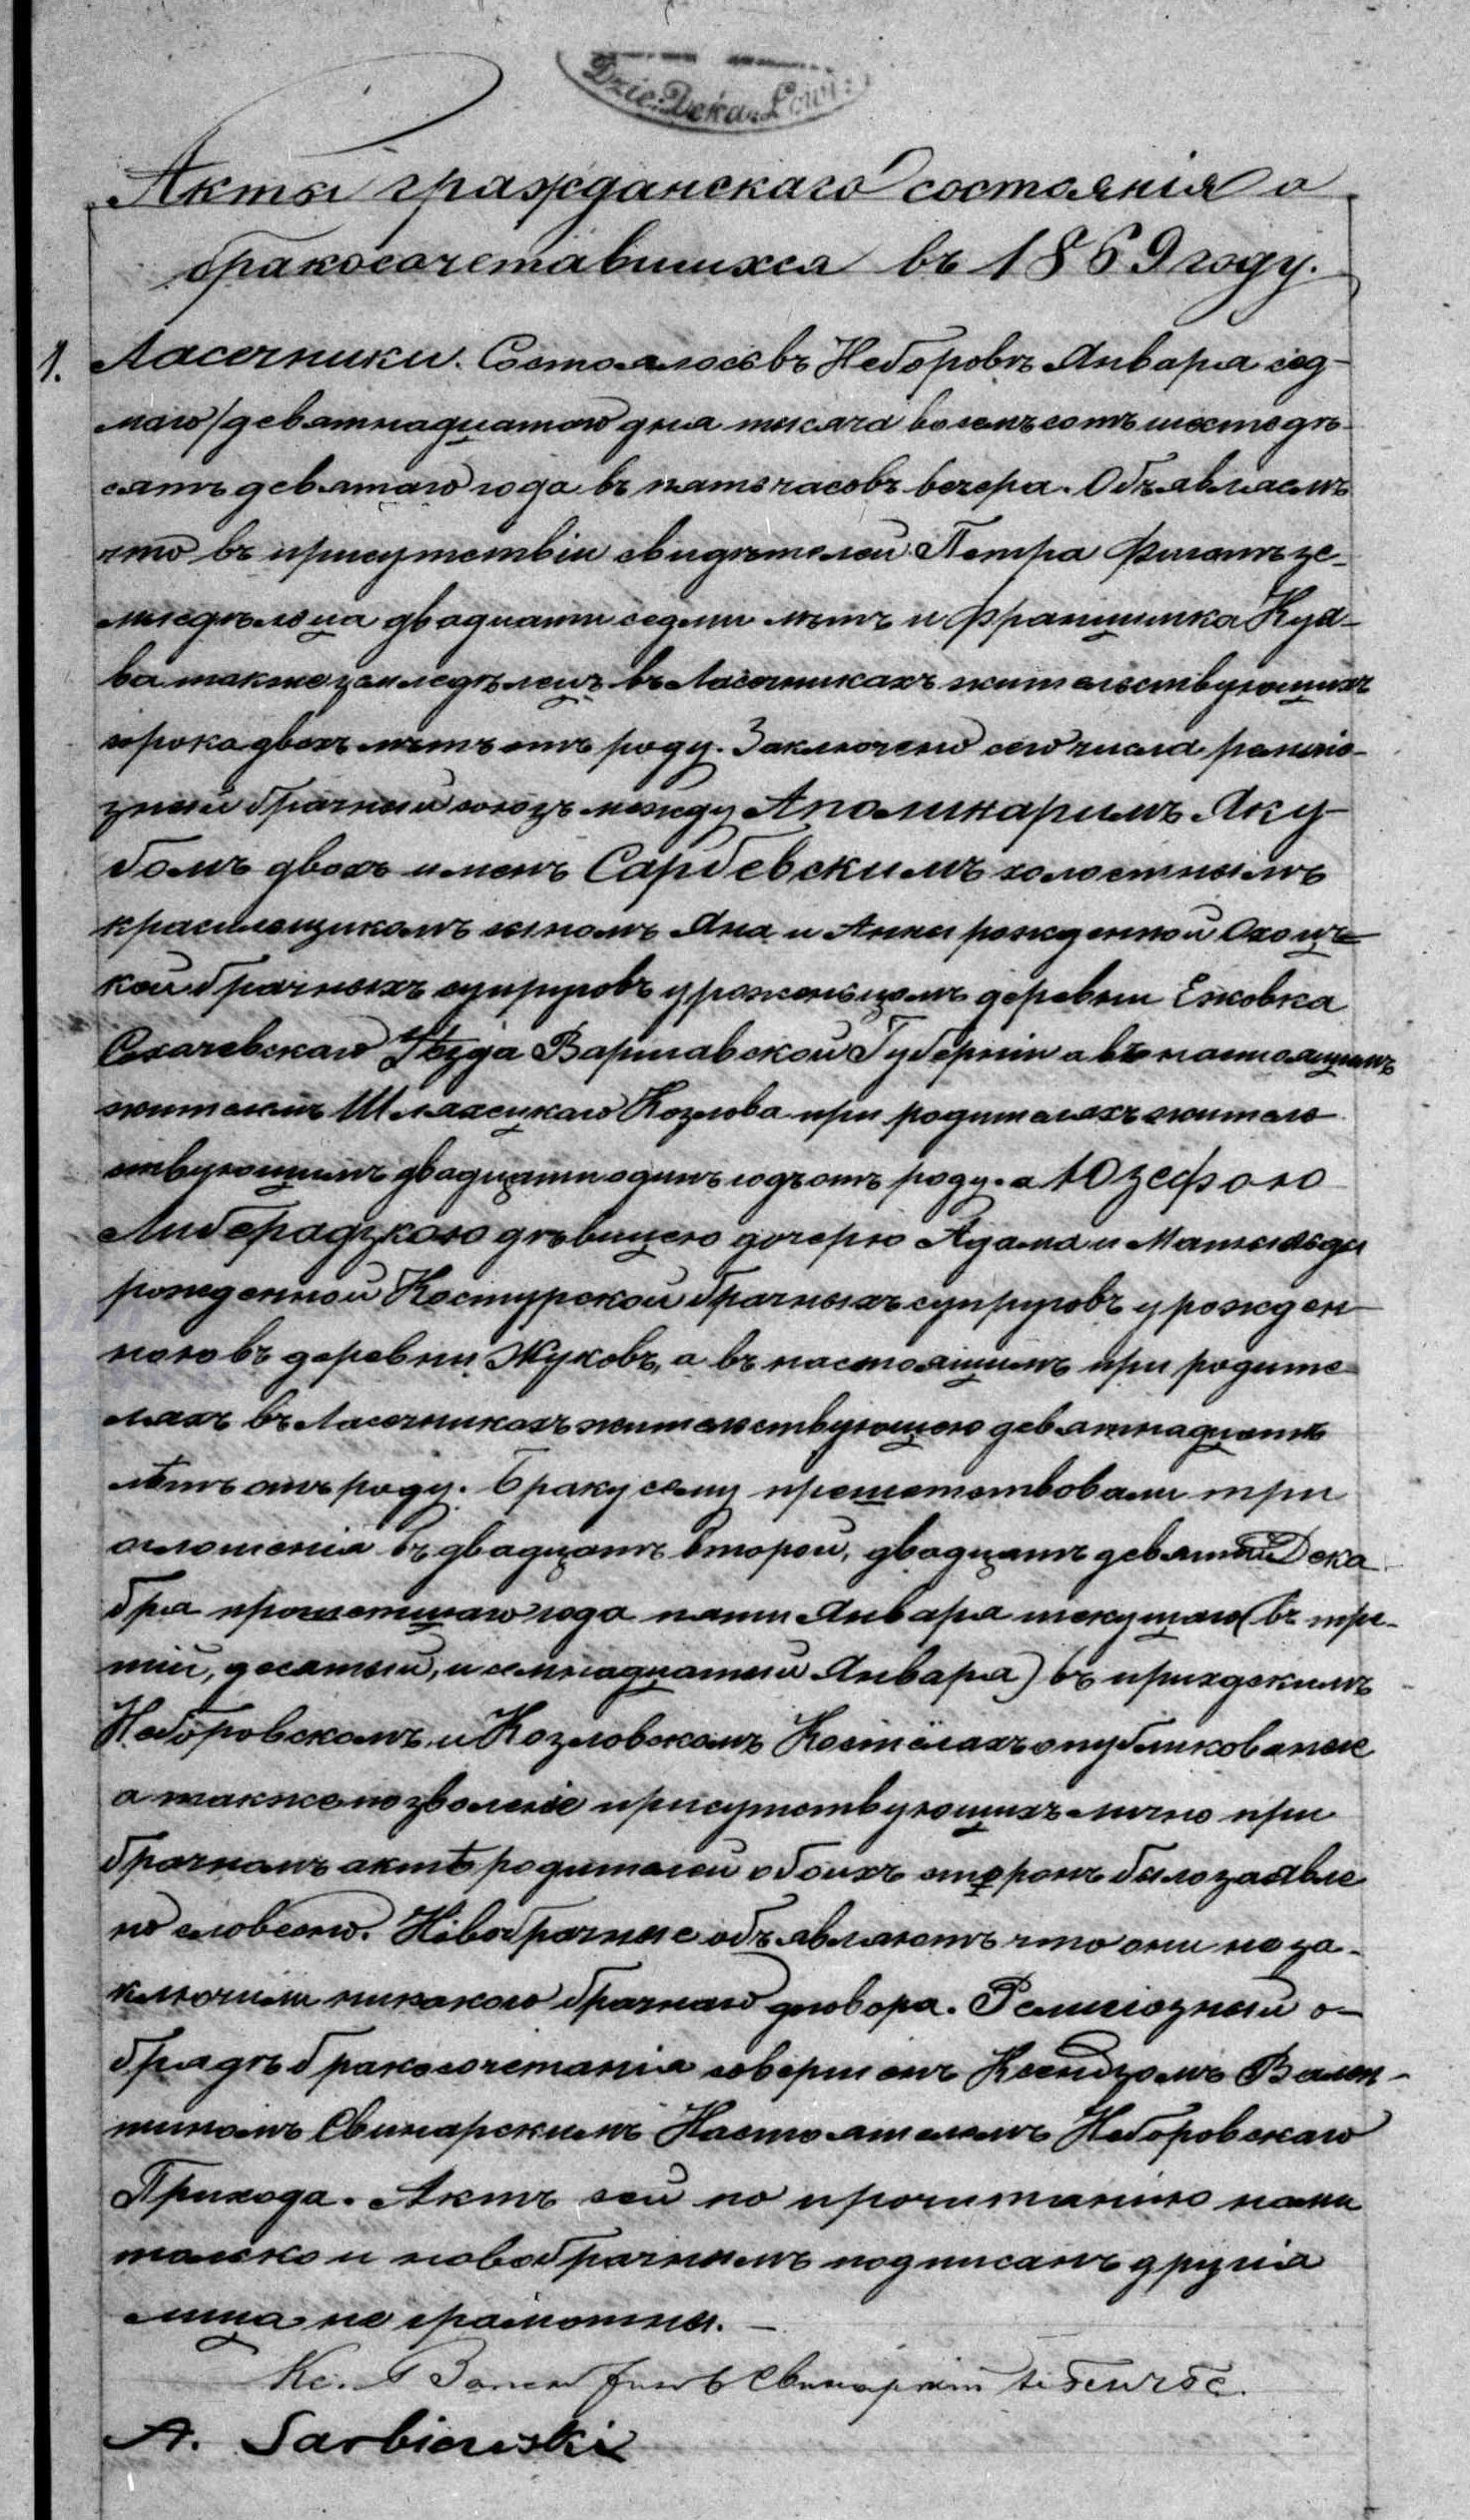 Dzie: Dekan: Łowi:
Акты гражданскаго состоянія о
бракосочетавшихся въ 1869 году.
1. Ласечники. Состоялось въ Неборовѣ Января сед-
маго/девятнадцатого дня тысяча восемъсотъ шестьдѣ-
сятъ девятаго года въ пять часовъ вечера. Объявляемъ
что въ присутствіи свидѣтелей Петра Фигатъ зе-
мледѣльца двадцати седми лѣтъ и Францишка Куд-
ва также земледѣлецъ въ Ласечникахъ жительствующихъ
сорока двохъ лѣтъ отъ роду. Заключено сего числа религіо-
зный брачный союзъ между Аполинаримъ Яку-
бомъ двохъ именъ Сарбевскимъ холостнымъ
красильщикомъ сыномъ Яна и Анны рожденной Охоц-
кой брачныхъ супруговъ уроженцомъ деревни Ежовка
Сохачевскаго Уѣзда Варшавской Губерніи а въ настоящимъ
жителемъ Шляхецкаго Козлова при родителяхъ житель-
ствующимъ двадцати одинъ годъ отъ роду. а Юзефою
Либерадзкою дѣвицею дочерю Адама и Матильды
рожденной Костурской брачныхъ супруговъ урожден-
ною въ деревни Жуковъ, а въ настоящимъ при родите-
ляхъ въ Ласечникахъ жительствующею девятнадцать
лѣтъ отъ роду. Браку сему прешетствовали три
оглошенія въ двадцатъ второй, двадцатъ девятый Дека
бря прошетшаго года пяти Января текущаго (въ тре-
тій, десятый, и семнадцатый Января) въ приходскимъ
Неборовскомъ и Козловскомъ Костёлахъ опубликованые
а также позволеніе присутствующихъ лично при
брачномъ актѣ родителей обоихъ сторонъ было заявле
но словесно. Новобрачные объявляютъ что они не за-
ключили никакого брачнаго договора. Религіозный о-
брядъ бракосочетанія совершенъ Ксендзомъ Вален-
тиномъ Свинарскимъ Настоятелемъ Неборовскаго
Прихода. Актъ сей по прочитанію нами
только и новобрачнымъ подписанъ другія
лица не грамотны. —
Кс. Валентинъ Свинарскій
A. Sarbiewski